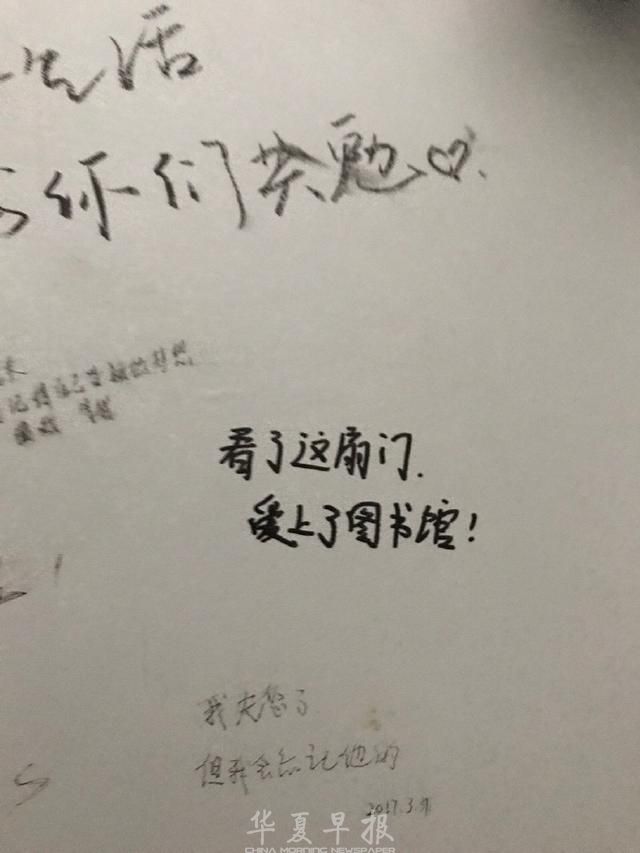 生活
你们共勉♡.
看了这扇门.
爱上了图书馆!
我失恋了
但我会忘记他的
2017.3.9
华夏早报
CHINA MORNING NEWSPAPER